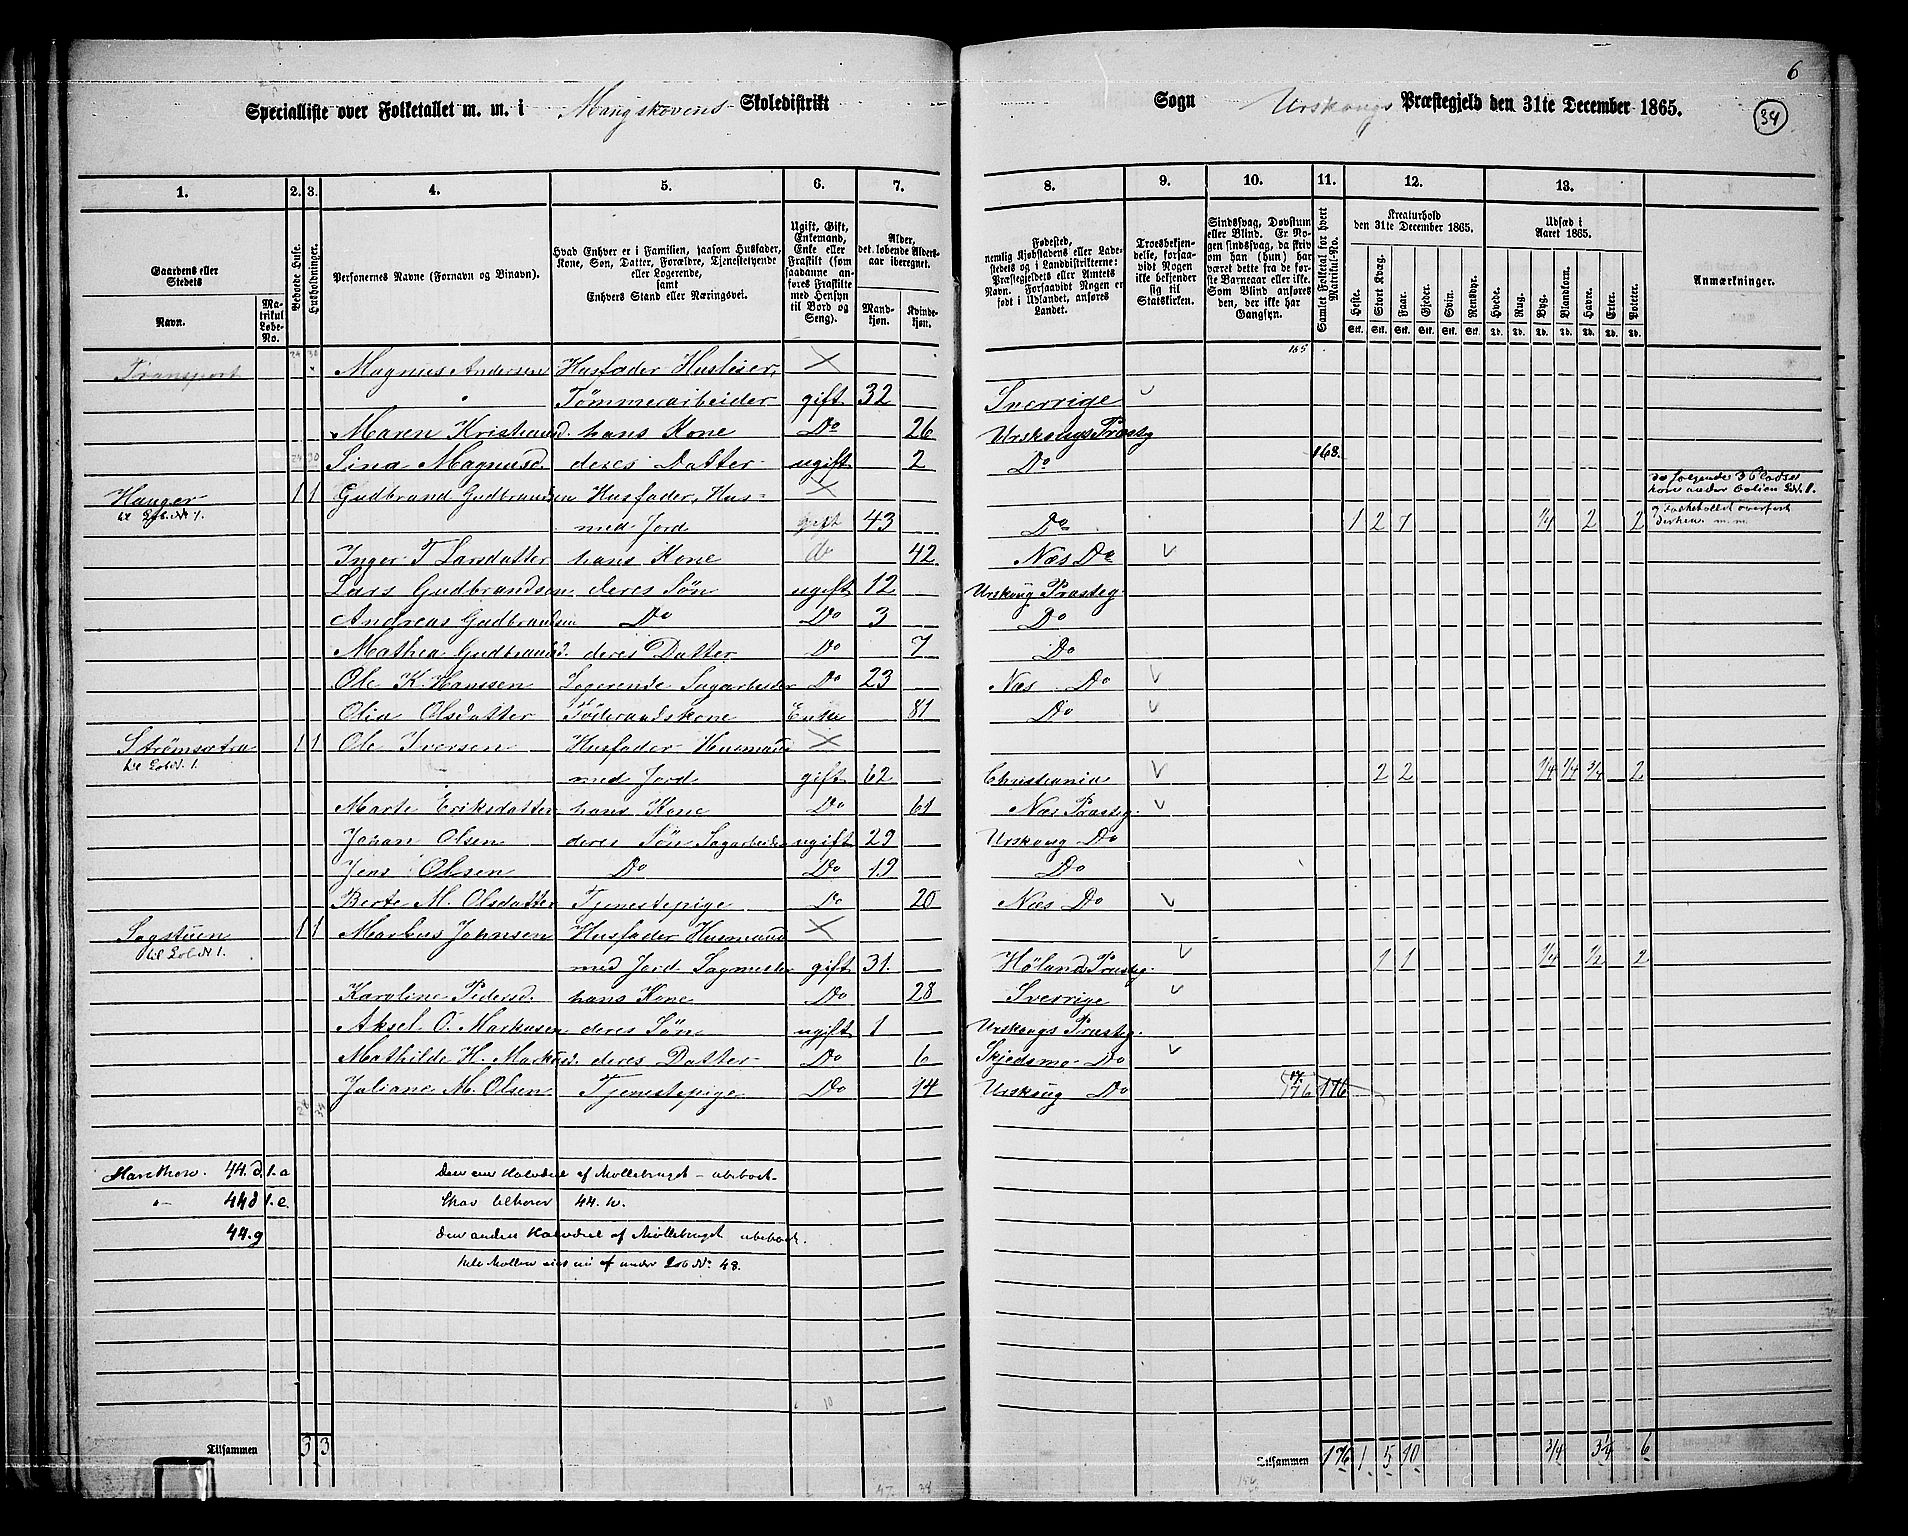 6
34
Specialliste over Folketallet m. m. i Mangskovens Skoledistrikt Sogn Urskougs Præstegjeld den 31te December 1865.
1. 2. 3. 4. 5. 6. 7. 8. 9. 10. 11. 12. 13.
Gaardens eller Stedets Navn.
Matrikul Løbe-No.
Beboede Huse.
Husholdninger.
Personernes Navne (Fornavn og Binavn).
Hvad Enhver er i Familien, saasom Husfader, Kone, Søn, Datter, Forældre, Tjenestetyende eller Logerende, samt Enhvers Stand eller Næringsvei.
Ugift, Gift, Enkemand, Enke eller Fraskilt (som saadanne anføres Fraskilte med Hensyn til Bord og Seng).
Alder, det løbende Aldersaar iberegnet.
Mandkjøn. Kvindekjøn.
Fødested, nemlig Kjøbstadens eller Ladestedets og i Landdistrikterne: Præstegjeldets eller Amtets Navn. Forsaavidt Nogen er født i Udlandet, anføres Landet.
Troesbekjendelse, forsaavidt Nogen ikke bekjender sig til Statskirken.
Sindssvag, Døvstum eller Blind. Er Nogen sindssvag, da skrives om han (hun) har været dette fra de første Barneaar eller ikke. Som Blind anføres den, der ikke har Gangsyn.
Samlet Folketal for hvert Matrikul-No.
Kreaturhold den 31te December 1865.
Heste. Stort Kvæg. Faar. Gjeder. Svin. Rensdyr.
Udsæd i Aaret 1865.
Hvede. Rug. Byg. Blandkorn. Havre. Erter. Poteter.
Anmærkninger.
Transport 24 30 Magnus Andersen Husfader Husleier, 165
Tømmerarbeider gift 32 Sverrige
Maren Kristians d. hans Kone Do 26 Urskougs Præstg
24 30 Sina Magnusd. deres Datter ugift 2 Do 168.
Hauger 1 1 Gudbrand Gudbrandsen Husfader, Hus=
til Lob. N 1. med Jord gift 43 Do 1 2 7 1/4 2 2
Inger T Larsdatter hans Kone do 42 Næs Do
Lars Gudbrandsen deres Søn ugift 12 Urskoug Præsteg.
Andreas Gudbrandsen Do Do 3 Do
Mathea Gudbrandsd. deres Datter Do 7 Do
Ole K. Hanssen Logerende Sagarbeider Do 23 Næs Do
Olia Olsdatter Føderaadskone Enke 81 Do
Strømsætra 1 1 Ole Iversen Husfader Husmand
til Lob N. 1. med Jord gift 62 Christiania 2 2 1/4 1/4 3/4 2
Marte Eriksdatter hans Kone Do 61 Næs Præsteg.
Johan Olsen deres Søn Sagarbeider ugift 29 Urskoug Do
Jens Olsen Do Do 19 Do
Berte M. Olsdatter Tjenestepige Do 20 Næs Do
Sagstuen 1 1 Markus Johnsen Husfader Husmand
til Lob N 1. med Jord Sagmester gift 31. Høland Præsteg. 1 1 1/4 1/2 2
Karoline Pedersd. hans Kone Do 28 Sverrige
Aksel O. Markusen deres Søn ugift 1 Urskougs Præsteg.
Mathilde H. Markusd. deres Datter Do 6 Skjedsmo Do
Juliane M. Olsen Tjenestepige Do 14 Urskoug Do 176 176
Harethon. 44. d. 1. a Den ene Halvdeel af Møllebruget – ubeboet.
"– 44 d 1. e. Skov tilhører 44. h.
44. g Den anden Halvdeel af Møllebruget ubeboet.
Hele Møllen eies nu af under Lob No. 48.
Tilsammen 3 3 Tilsammen 176 1 5 10 3/4 3 1/4 6